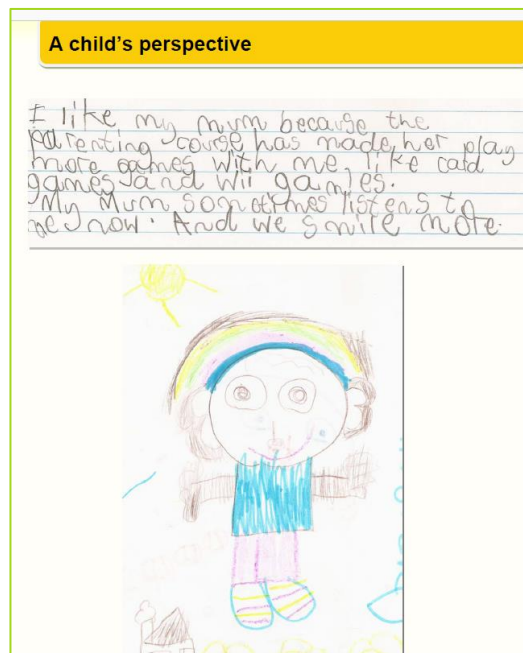 A child's perspective
I like my mum because the
parenting course has made her play
more games with me, like card
games and wii games.
My Mum sometimes listens to
me now. And we smile more.